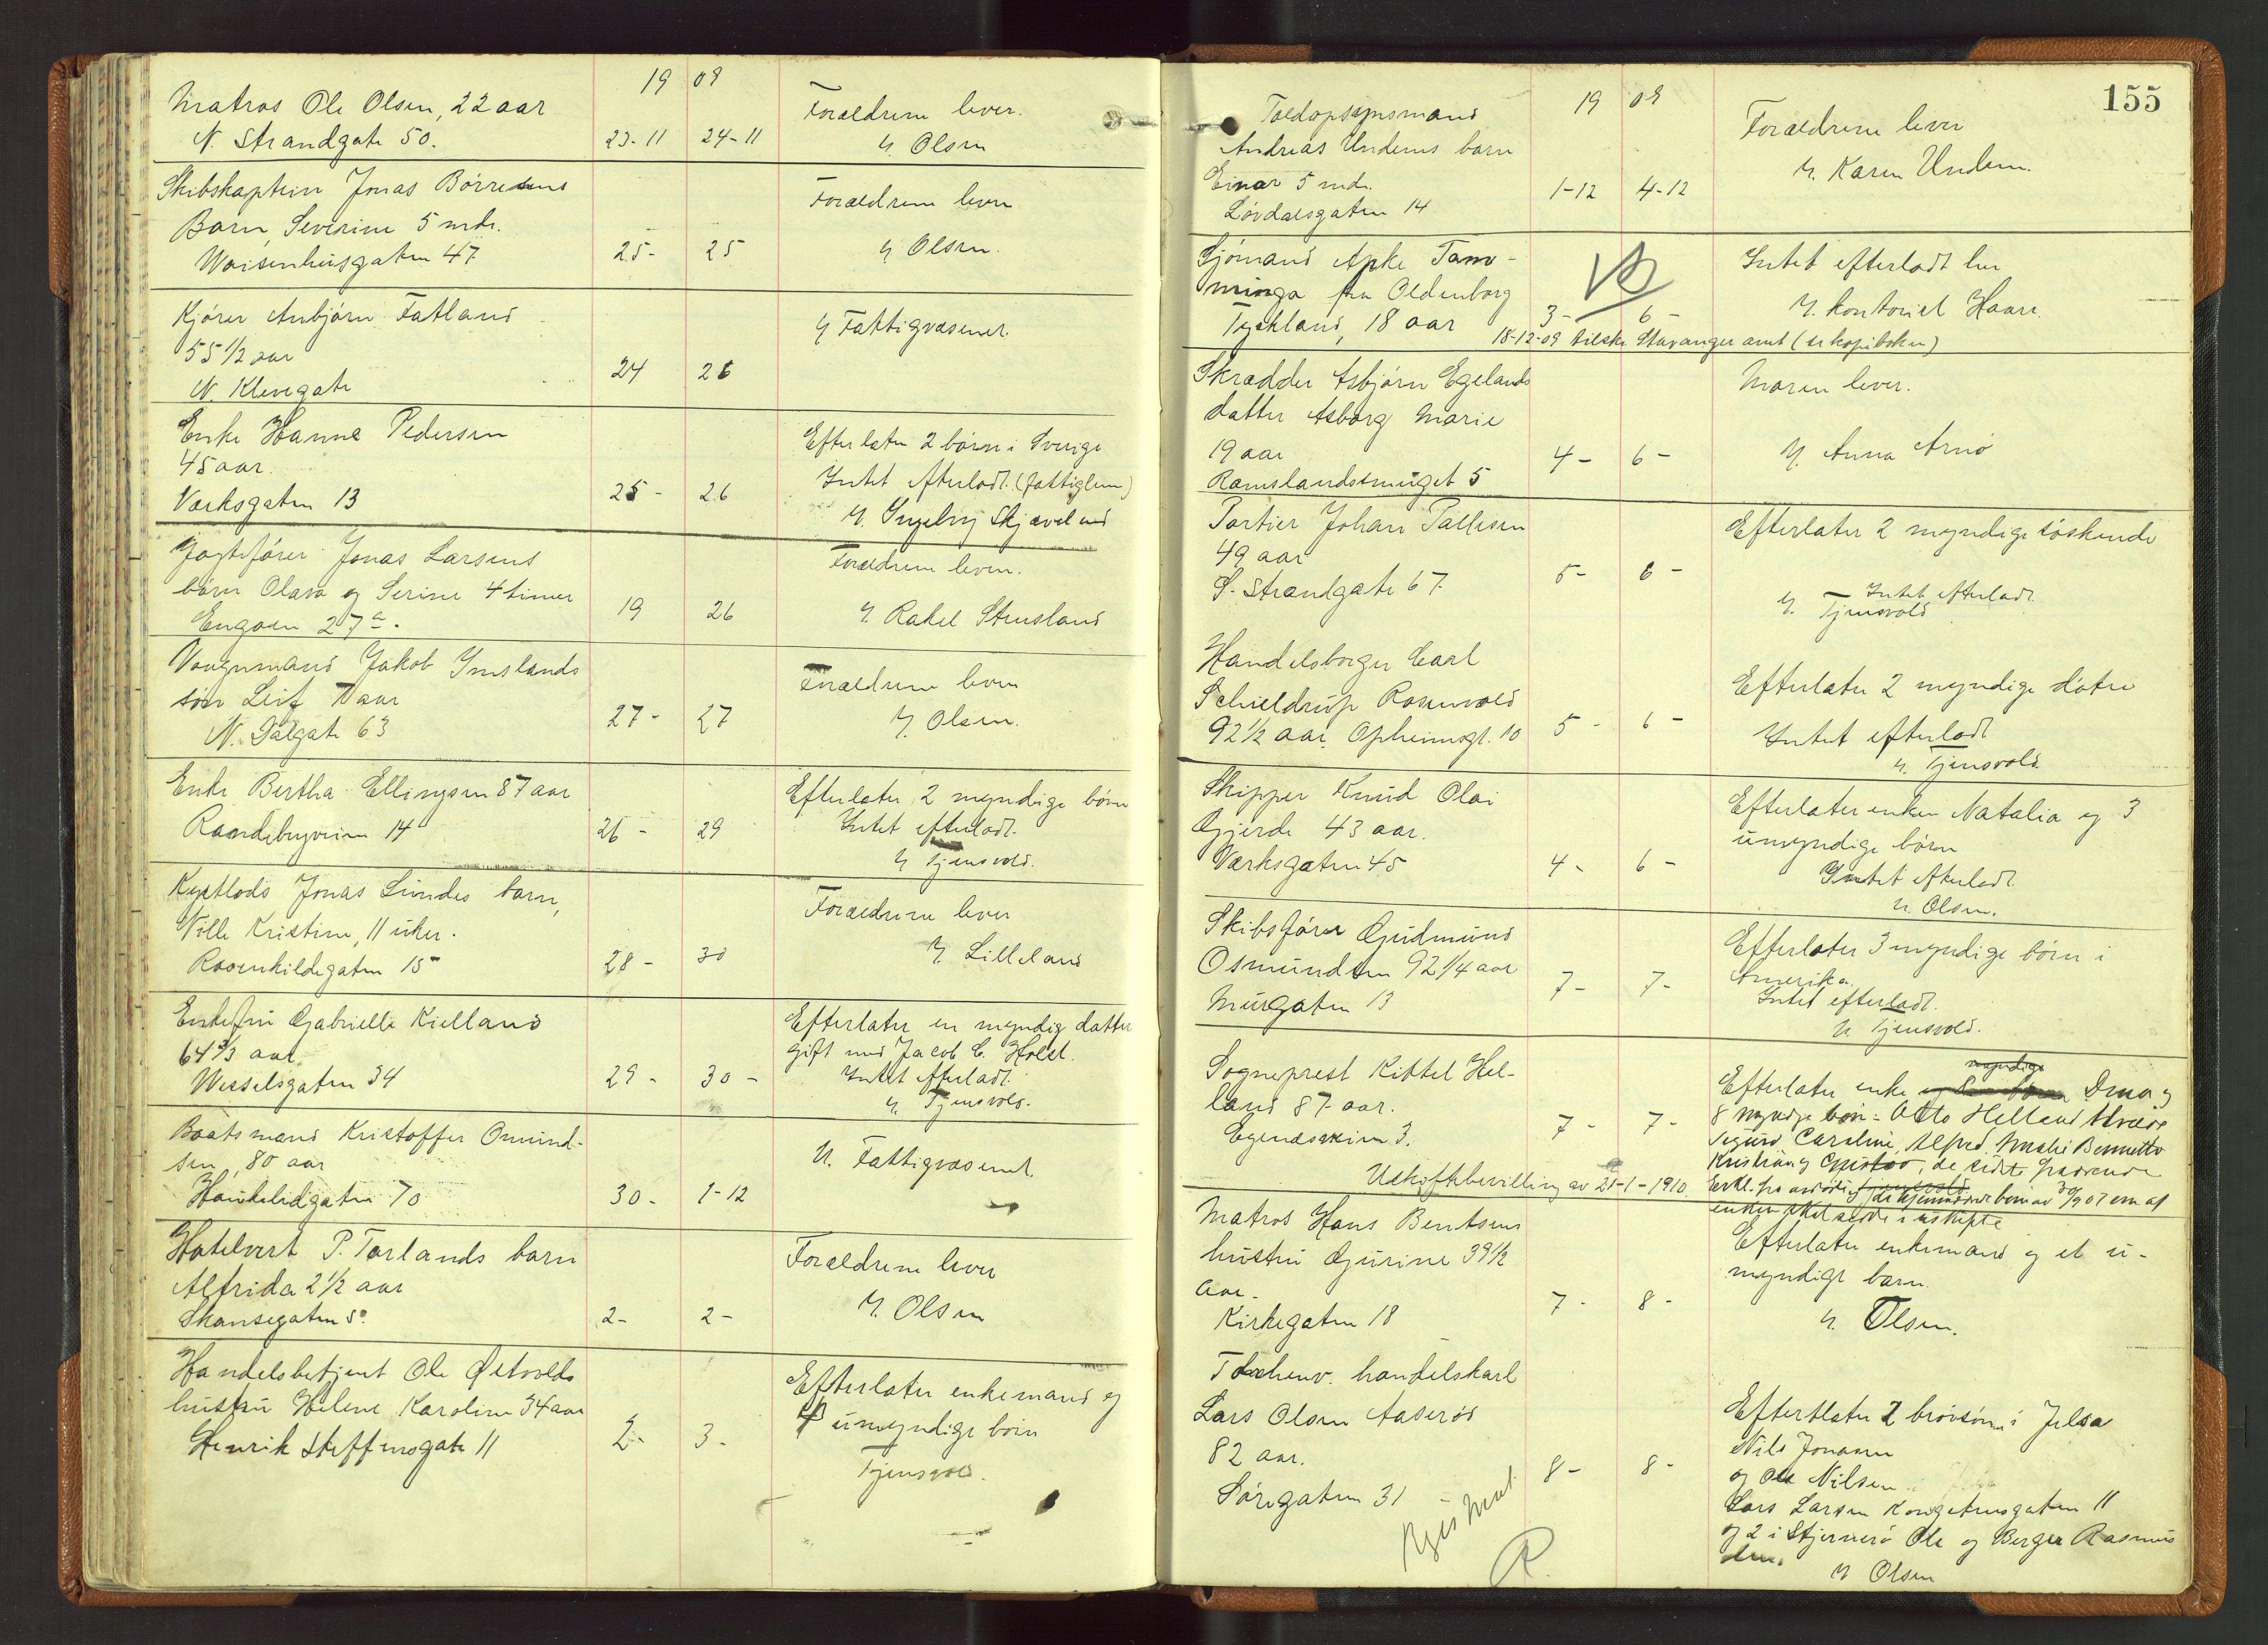 19 09
Matros Ole Olsen, 22 aar
N. Strandgate 50.
23-11 24-11
Forældrene lever.
Olsen
Skibskaptein Jonas Börresens
Barn, Severine 5 mdr.
Waisenhusgaten 47
25- 25
Forældrene lever
Olsen.
Kjörer Anbjörn Fatland
55 1/2 aar
N. Klevegate
24 26
Fattigvæsenet.
Enke Hanna Pedersen
45 aar.
Værksgaten 13
25- 26
Efterlater 2 börn i Sverige
Intet efterladt. (fattiglem)
Ingeborg Skjæveland
Jagtefører Jonas Larsens
börn Olava og Serine 4 timer
Engoen 27 a.
19 26
Forældrene lever.
Rakel Strusland
Vougnmand Jakob Imslands
sön Leif 7 aar
N. Dalgate 63
27- 27
Forældrene lever
Olsen.
Enke Bertha Ellingsen 87 aar
Randebergveien 14
26- 29
Efterlater 2 myndige börn
Intet efterladt.
Tjensvold.
Kystlods Jonas Lundes barn,
Nille Kristine, 11 uker.
Rosenkildegaten 15
28- 30
Forældrene lever
Lilleland
Enkefru Gabrielle Kielland
64 2/3 aar
Wesselsgaten 34
29- 30-
Efterlater en myndig datter
gift med Jacob C. Holst.
Intet efterladt.
Tjensvold.
Baatsmand Kristoffer Omund-
sen, 80 aar
Haukelidgaten 70
30- 1-12
Fattigvæsenet.
Hotelvert P. Torlands barn
Alfrida 2 1/2 aar
Skansegaten 5.
2- 2-
Forældrene lever
Olsen
Handelsbetjent Ole Østvolds
hustru Helene Karoline 34 aar
Henrik Steffensgate 11
2- 3-
Efterlater enkemand og
4 umyndige börn
Tjensvold.
155
19 09
Toldopsynsmand
Andreas Undems barn
Einar 5 mdr.
Lövdalsgaten 14
1-12 4-12
Forældrene lever
Karen Undem.
Sjömand Apke Tam-
minga fra Oldenborg
Tyskland, 18 aar
3- 6-
Intet efterladt her
kontorist Haarr.
18-12-09 tilskr. Stavanger amt (se kopiboken)
Skrædder Asbjörn Egelands
datter Asborg Marie
19 aar
Ramslandssmuget 5
4- 6-
Moren lever.
Anna Arnö
Portier Johan Pallesen
49 aar
S. Strandgate 67
5- 6-
Efterlater 2 myndige söskende
Intet efterladt
Tjensvold
Handelsborger Carl
Schieldrup Rosenvold
92 1/2 aar. Opheimsgt. 10
5- 6-
Efterlater 2 myndige døtre
Intet efterladt
Tjensvold.
Skipper Knud Olai
Gjerde 43 aar.
Værksgaten 45
4- 6-
Efterlater enken Natalia og 3
umyndige börn
Intet efterladt
Olsen.
Skibsförer Gudmund
Osmundsen 92 1/4 aar
Murgaten 13
7- 7-
Efterlater 3 myndige börn i
Amerika.
Intet efterladt.
Tjensvold.
Sogneprest Kittel Hel-
land 87 aar.
Egenæsveien 3.
7- 7-
myndige
Efterlater enke og
8 myndige börn: Otto Helland
Sigurd Caroline, Alfred, Malie Bennetter
Kristian og
Uskiftebevilling av 21-1-1910
enken
Matros Hans Bentsens
hustru Gurine 39 1/2
aar.
Kirkegaten 18
7- 8-
Efterlater enkemand og et u-
myndigt barn.
Olsen.
handelskarl
Lars Olsen Aaseröd
82 aar.
Söregaten 31
8- 8-
Efterlater 2 brorsönner i Jelsa
Nils Jonasen
og Ole Nilsen
Lars Larsen Kongsteinsgaten 11
og 2 i Stjernerö Ole og Berger Rasmus
sen.
Olsen
R.